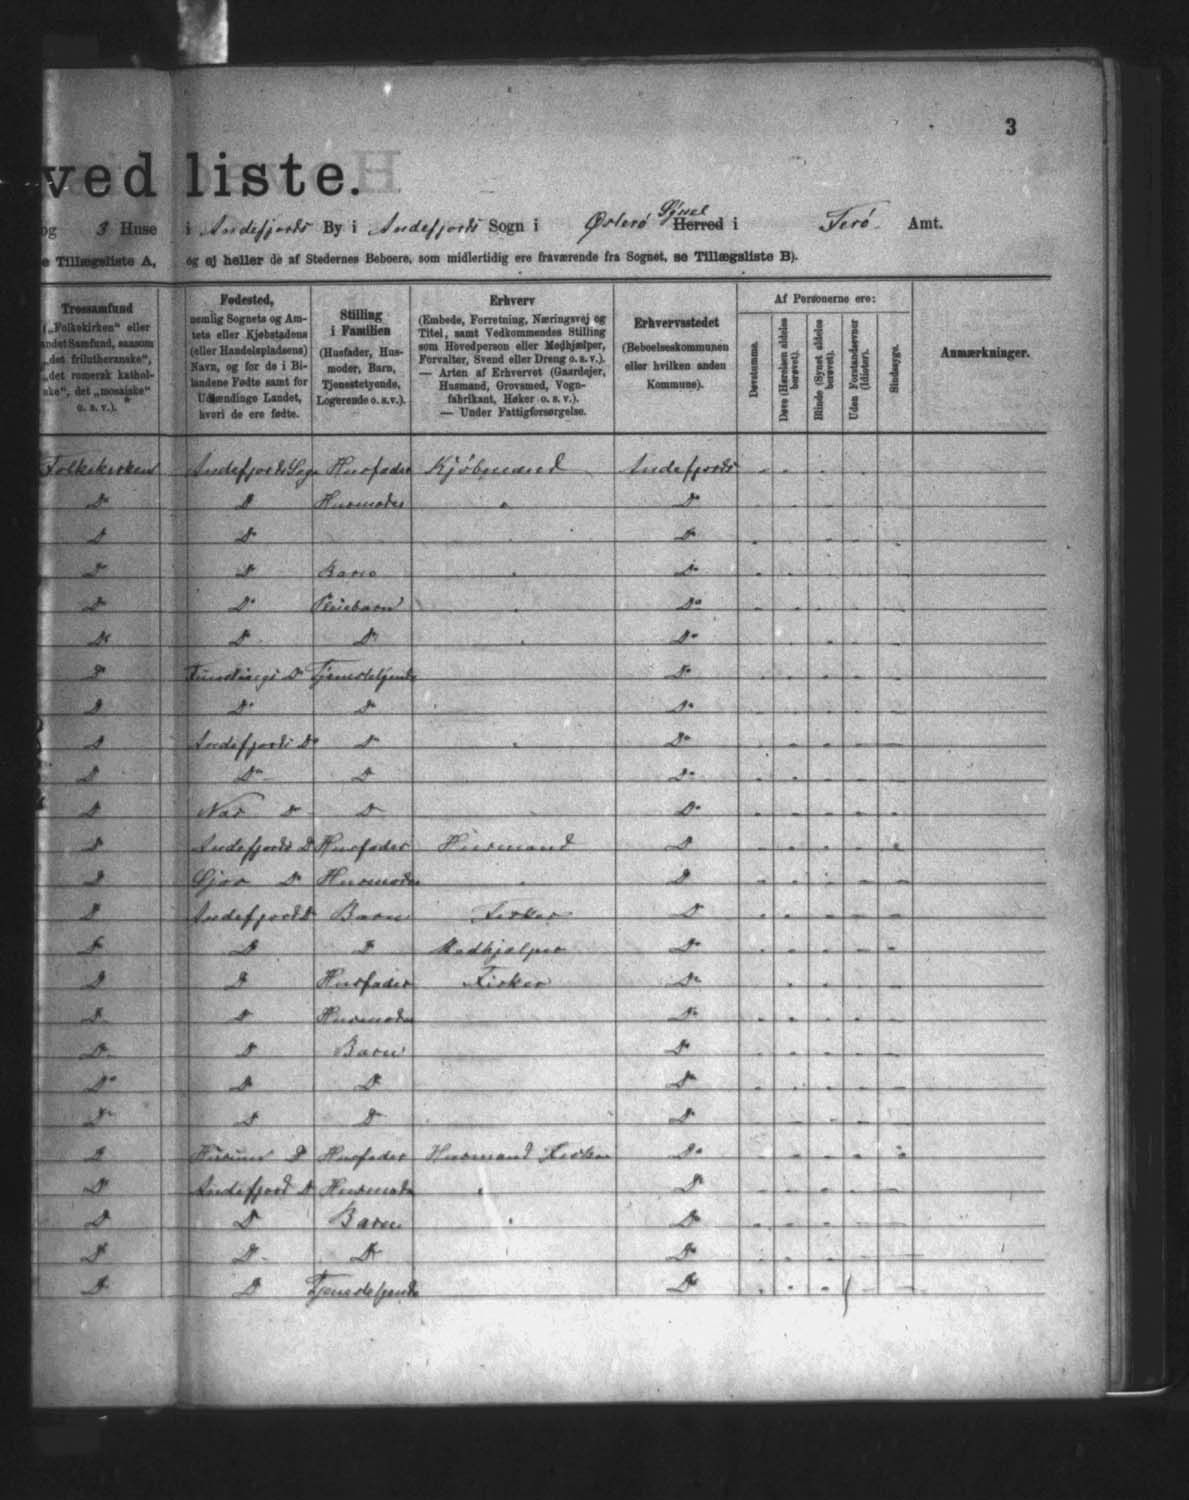 3
ved liste.
og 3 Huse i Andefjords By i Andefjords Sogn i Østerø Syssel Herred i Ferø Amt.
e Tillægsliste A, og ej heller de af Stedernes Beboere, som midlertidig ere fraværende fra Sognet, se Tillægsliste B).
Trossamfund
(„Folkekirken“ eller
andet Samfund, saasom
„det frilutheranske“,
„det romersk kathol-
ske“, det „mosaiske“
o. s. v.).
Fødested,
nemlig Sognets og Am-
tets eller Kjøbstadens
(eller Handelspladsens)
Navn, og for de i Bi-
landene Fødte samt for
Udlændinge Landet,
hvori de ere fødte.
Stilling
i Familien
(Husfader, Hus-
moder, Barn,
Tjenestetyende,
Logerende o. s. v.).
Erhverv
(Embede, Forretning, Næringsvej og
Titel, samt Vedkommendes Stilling
som Hovedperson eller Medhjælper,
Forvalter, Svend eller Dreng o. s. v.).
— Arten af Erhvervet (Gaardejer,
Husmand, Grovsmed, Vogn-
fabrikant, Høker o. s. v.).
— Under Fattigforsørgelse.
Erhvervsstedet
(Beboelseskommunen
eller hvilken anden
Kommune).
Af Personerne ere:
Døvstumme.
Døve (Hørelsen aldeles
berøvet).
Blinde (Synet aldeles
berøvet).
Uden Forstandsevner
(Idioter).
Sindssyge.
Anmærkninger.
Folkekirken Andefjords Sogn Husfader Kjøbmand Andefjords
Do D Husmoder Do
D Do Do
D D Barn Do
D Do Pleiebarn Do
Do D Do Do
D D Tjenestetyende Do
D Do D Do
D Andefjords Do D Do
D Do D Do
D D D Do
D Andefjords D Husfader Husmand D
D D Husmoder D
D Andefjords D Barn Fisker D
D D D Medhjælper Do
D D Husfader Fisker Do
D D Husmoder Do
D D Barn Do
Do D D Do
D D D D
D D Husfader Husmand Fisker Do
D Andefjord D Husmoder D
D D Barn Do
D D D Do
D D Tjenestetyende Do